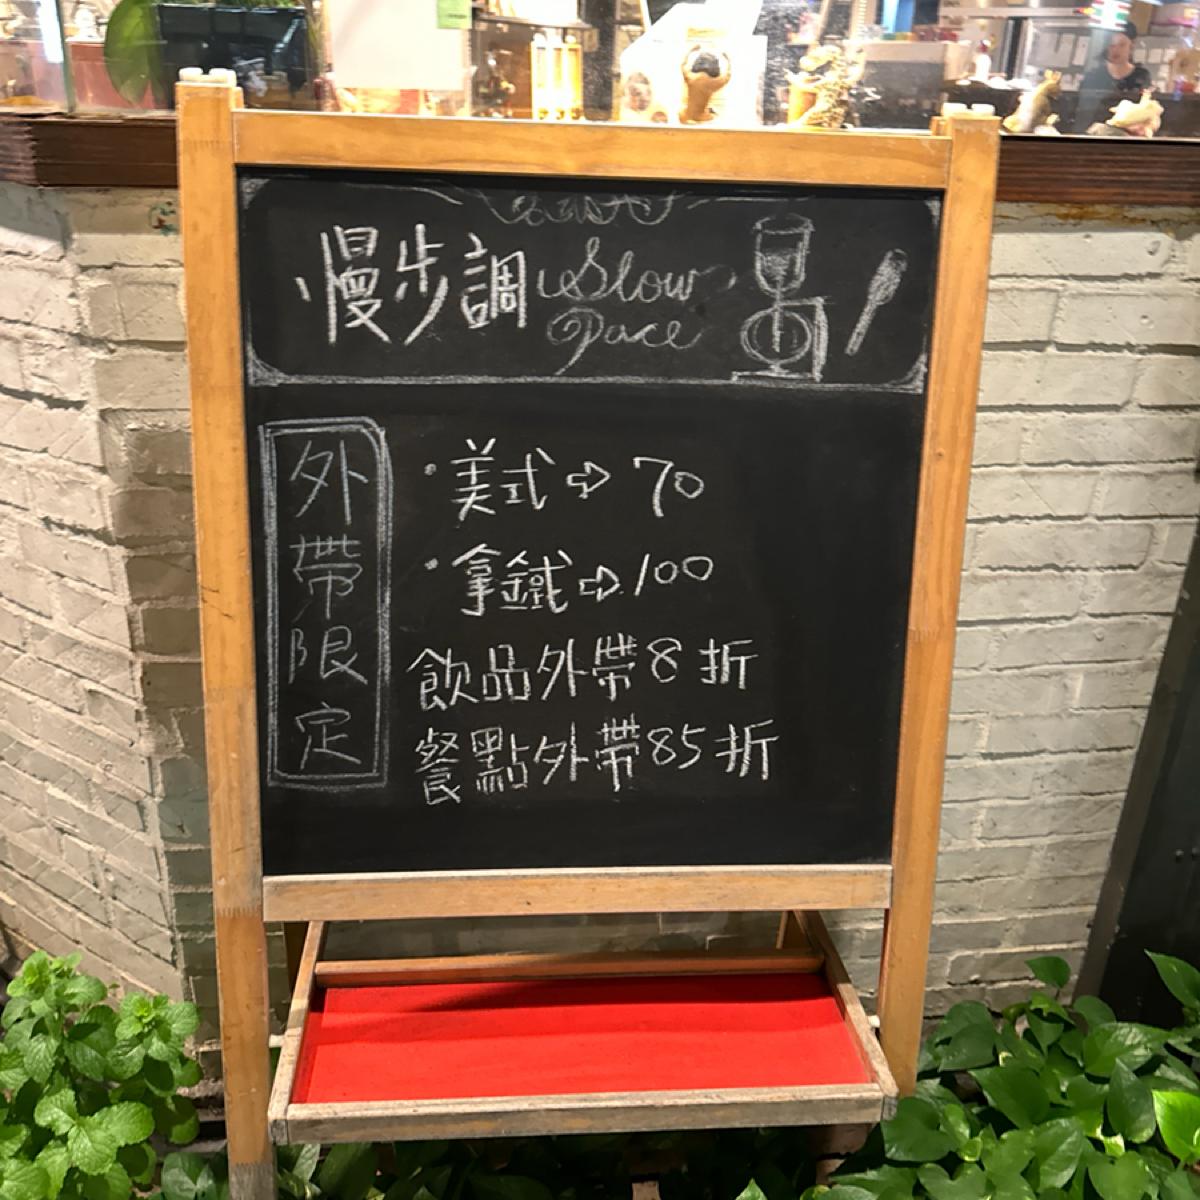 慢步調
Slow
Pace
外帶限定
美式⇨70
拿鐵⇨100
飲品外帶8折
餐點外帶85折